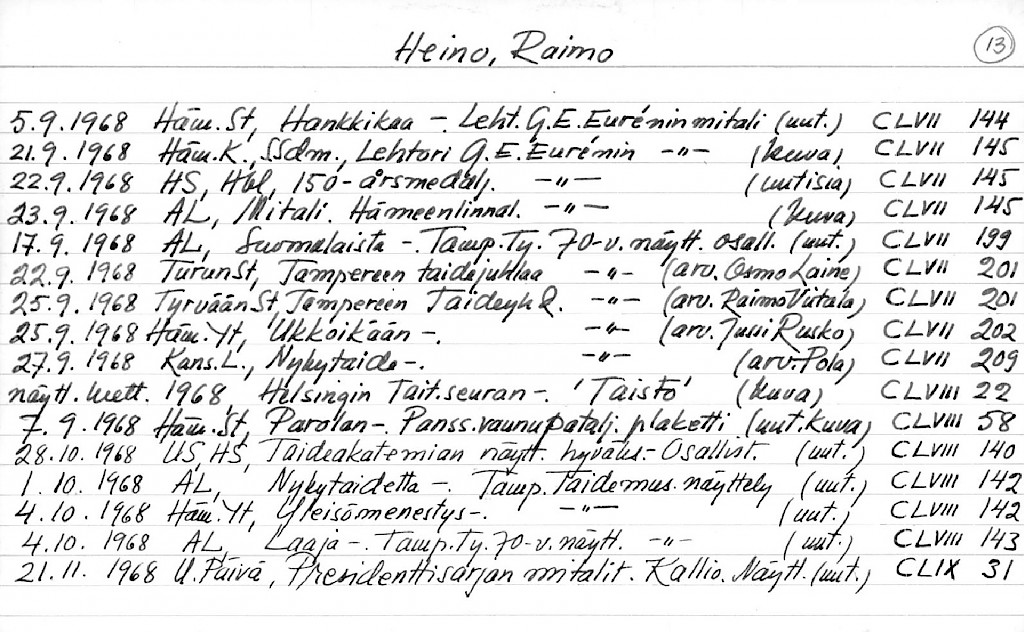 Heino, Raimo 13
5.9.1968 Häm.St, Hankkikaa -. Leht. G.E. Eurénin mitali (uut.) CLVII 144
21.9.1968 Häm.K., SSdm., Lehtori G.E. Eurénin -"- (kuva) CLVII 145
22.9.1968 HS, Hbl, 150-årsmedalj. -"- (uutisia) CLVII 145
23.9.1968 AL, Mitali. Hämeenlinnal. -"- (kuva) CLVII 145
17.9.1968 AL, Suomalaista -. Tamp.Ty. 70-v. näytt. osall. (uut.) CLVII 199
22.9.1968 TurunSt, Tampereen taidejuhlaa -"- (arv. Osmo Laine) CLVII 201
25.9.1968 TyrväänSt, Tampereen Taideyh -"- (arv. Raimo Viitala) CLVII 201
25.9.1968 Häm.Yt, Ukkoikään -. -"- (arv. Jussi Rusko) CLVII 202
27.9.1968 Kans.L., Nykytaide -. -"- (arv. Pola) CLVII 209
näytt. luett. 1968 Helsingin Tait.seuran -. 'Taisto' (kuva) CLVIII 22
7.9.1968 Häm.St, Parolan -. Panss.vaunupatalj. plaketti (uut. kuva) CLVIII 58
28.10.1968 US, HS, Taideakatemian näytt. hyväks.- Osallist. (uut.) CLVIII 140
1.10.1968 AL, Nykytaidetta -. Tamp. Taidemus. näyttely (uut.) CLVIII 142
4.10.1968 Häm.Yt, Yleisömenestys -. -"- (uut.) CLVIII 142
4.10.1968 AL, Laaja -. Tamp.Ty. 70-v. näytt. -"- (uut.) CLVIII 143
21.11.1968 U.Päivä, Presidenttisarjan mitalit. Kallio. Näytt. (uut.) CLIX 31